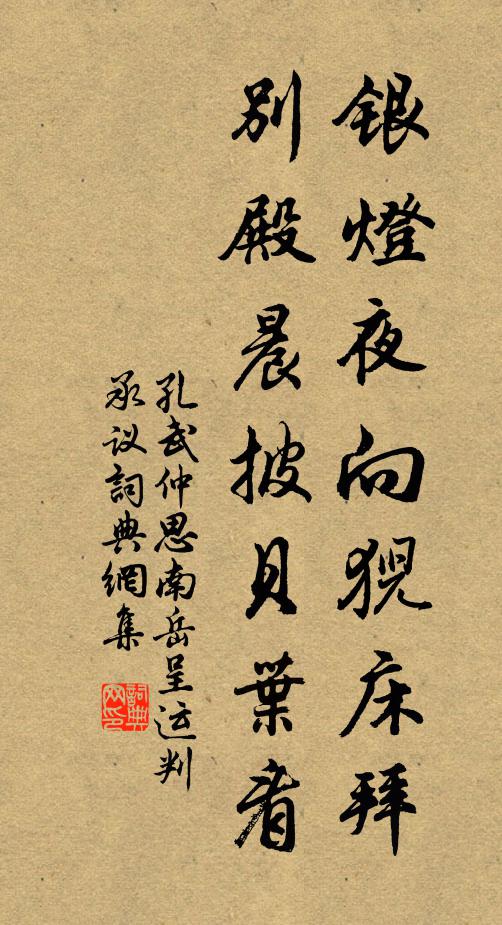 銀燈夜向猊床拜
別殿晨披貝葉看
孔武仲思南岳呈运判
承议詞典網集
詞典
网印